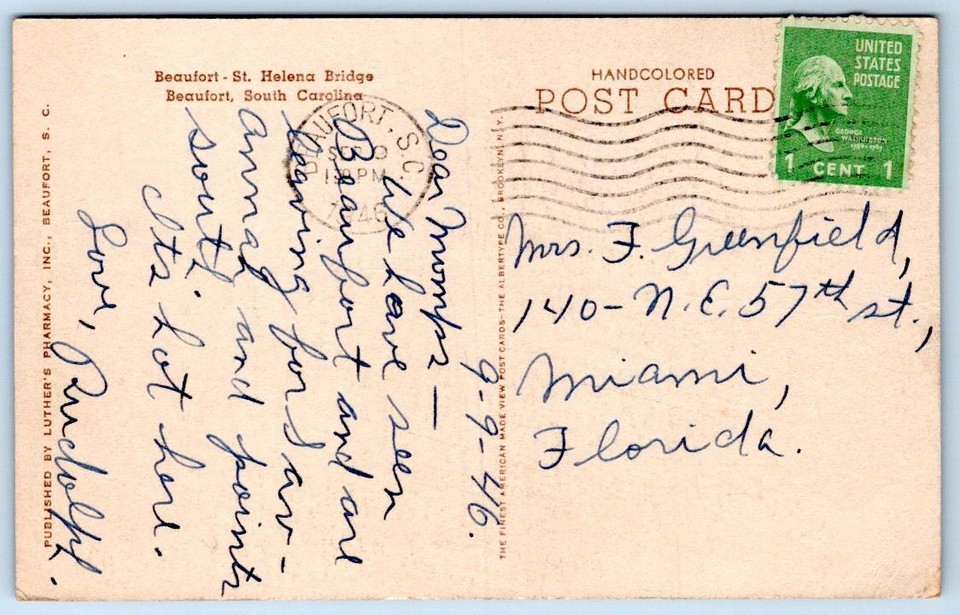 Beaufort - St. Helena Bridge
Beaufort, South Carolina
HANDCOLORED
POST CARD
UNITED
STATES
POSTAGE
GEORGE
WASHINGTON
1789-1797
1 CENT 1
BEAUFORT, S.C.
SEP 9
PM
1946
9-9-46.
Dear Mumps —
We have seen
Beaufort and are
leaving for Sav-
annah and points
south.
Its hot here.
Love,
Rudolph.
Mrs. F. Greenfield,
140-N.E. 57th st.,
Miami,
Florida.
PUBLISHED BY LUTHER'S PHARMACY, INC., BEAUFORT, S. C.
THE FINEST AMERICAN MADE VIEW POST CARDS-THE ALBERTYPE CO., BROOKLYN, N.Y.